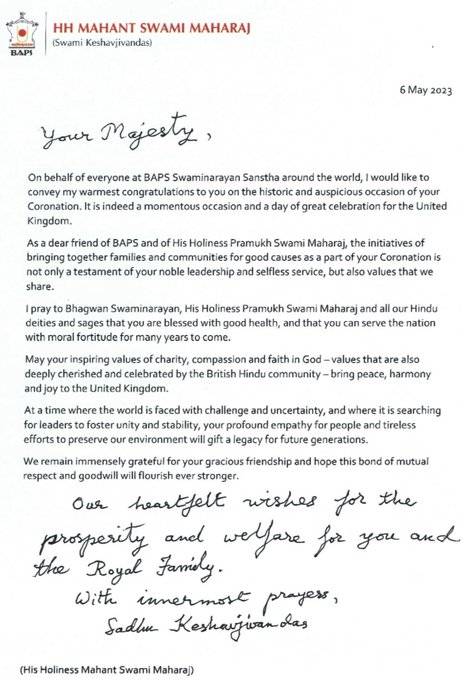 HH MAHANT SWAMI MAHARAJ
(Swami Keshavjivandas)
BAPS
6 May 2023
Your Majesty,
On behalf of everyone at BAPS Swaminarayan Sanstha around the world, I would like to
convey my warmest congratulations to you on the historic and auspicious occasion of your
Coronation. It is indeed a momentous occasion and a day of great celebration for the United
Kingdom.
As a dear friend of BAPS and of His Holiness Pramukh Swami Maharaj, the initiatives of
bringing together families and communities for good causes as a part of your Coronation is
not only a testament of your noble leadership and selfless service, but also values that we
share.
I pray to Bhagwan Swaminarayan, His Holiness Pramukh Swami Maharaj and all our Hindu
deities and sages that you are blessed with good health, and that you can serve the nation
with moral fortitude for many years to come.
May your inspiring values of charity, compassion and faith in God – values that are also
deeply cherished and celebrated by the British Hindu community – bring peace, harmony
and joy to the United Kingdom.
At a time where the world is faced with challenge and uncertainty, and where it is searching
for leaders to foster unity and stability, your profound empathy for people and tireless
efforts to preserve our environment will gift a legacy for future generations.
We remain immensely grateful for your gracious friendship and hope this bond of mutual
respect and goodwill will flourish ever stronger.
Our heartfelt wishes for the
prosperity and welfare for you and
the Royal Family.
With innermost prayers,
Sadhu Keshavjivandas
(His Holiness Mahant Swami Maharaj)